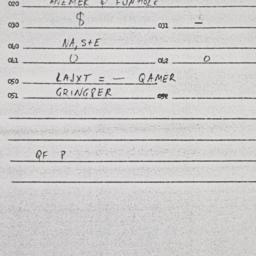 020
030 $ 031 1
040 NA, S+E
041 0 042 0
050 LAJXT = — QAMER
051 GRINGPER
QF P